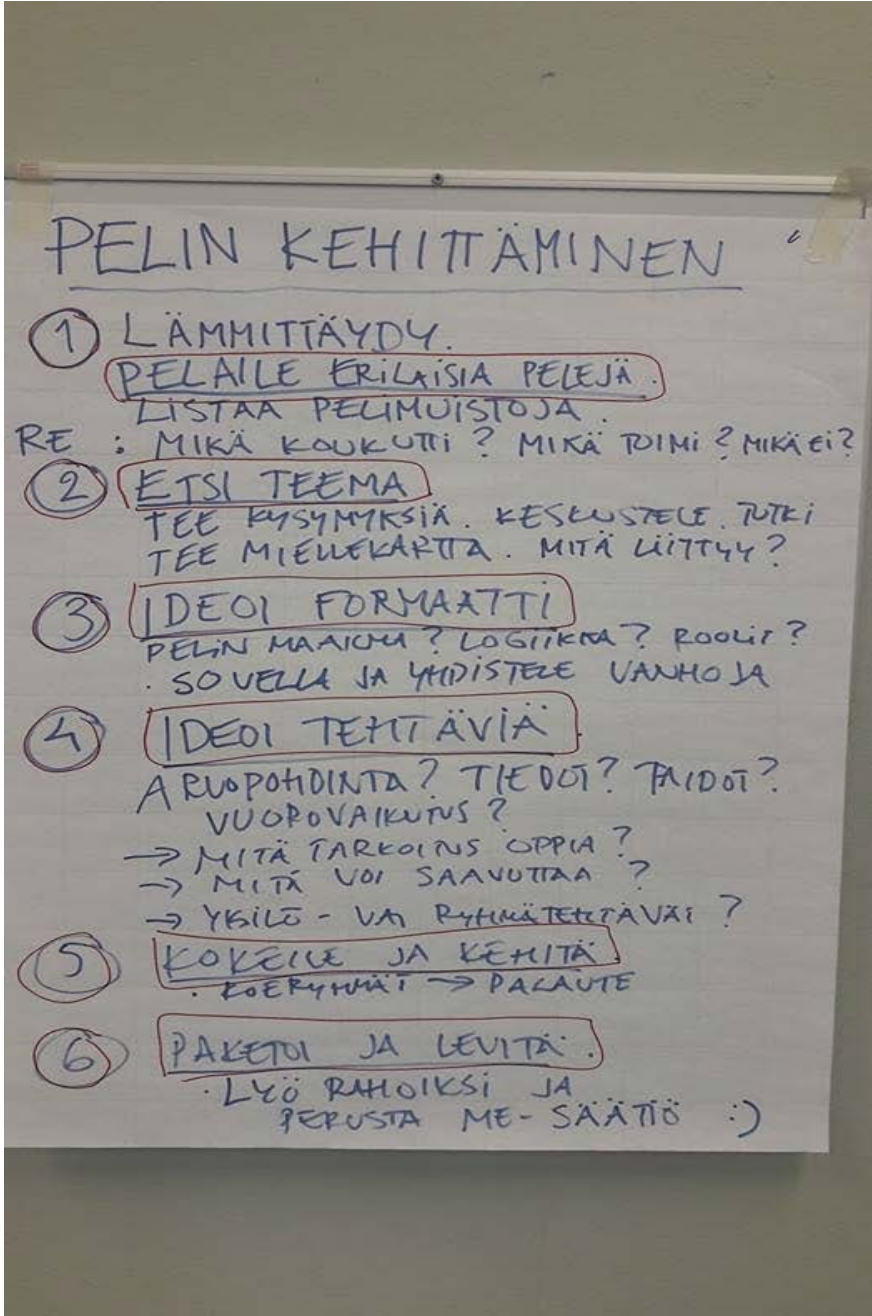 PELIN KEHITTÄMINEN
1 LÄMMITTÄYDY.
PELAILE ERILAISIA PELEJÄ.
LISTAA PELIMUISTOJA.
RE : MIKÄ KOUKUTTI? MIKÄ TOIMI? MIKÄ EI?
2 ETSI TEEMA
TEE KYSYMYKSIÄ. KESKUSTELE. TUTKI
TEE MIELLEKARTTA. MITÄ LIITTYY?
3 IDEOI FORMAATTI
PELIN MAAILMA? LOGIIKKA? ROOLIT?
· SOVELLA JA YHDISTELE VANHOJA
4 IDEOI TEHTÄVIÄ
ARVOPOHDINTA? TIEDOT? TAIDOT?
VUOROVAIKUTUS?
→ MITÄ TARKOITUS OPPIA?
→ MITÄ VOI SAAVUTTAA?
→ YKSILÖ- VAI RYHMÄTEHTÄVÄT?
5 KOKEILE JA KEHITÄ.
· KOERYHMÄT → PALAUTE
6 PAKETOI JA LEVITÄ.
· LYÖ RAHOIKSI JA
PERUSTA ME-SÄÄTIÖ :)